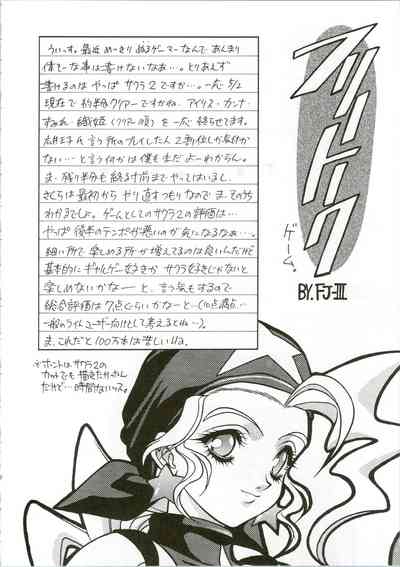 フリートーク
ゲーム。
BY. FJ-III
ういっす。最近 めっきり ぬるゲーマーなんで あんまり
偉そーな事は書けないなあ…。とりあえず
書けるのは やっぱ サクラ2ですか…。一応 5/2
現在で 約半数クリアーですかね アイリス・カンナ・
すみれ・織姫(クリアー順)を 一応 終らせてます。
ない…と言う何かは僕もまだ よーわからん。
ま、残り半分も 終るまでやってはいまし、
さくらは最初から やり直すつもりなので ま、そのうち
わかるでしょ。ゲームとしてのサクラ2の評価は…
やっぱ 後半のテンポが悪いのが気になるなぁ…。
細い所で 楽しめる所が 増えてるのは良いんだけど
基本的に ギャルゲー好きか サクラ好きじゃないと
楽しめないかなー と 言う気もするんで
総合評価は 7点ぐらいかなーと…(10点満点…
一般のライトユーザー向けとして考えるとね…)
ま、これだと100万本は難しいよね。
※ホントは サクラ2の
カットでも 描きたかったん
だけど…時間ないッス。